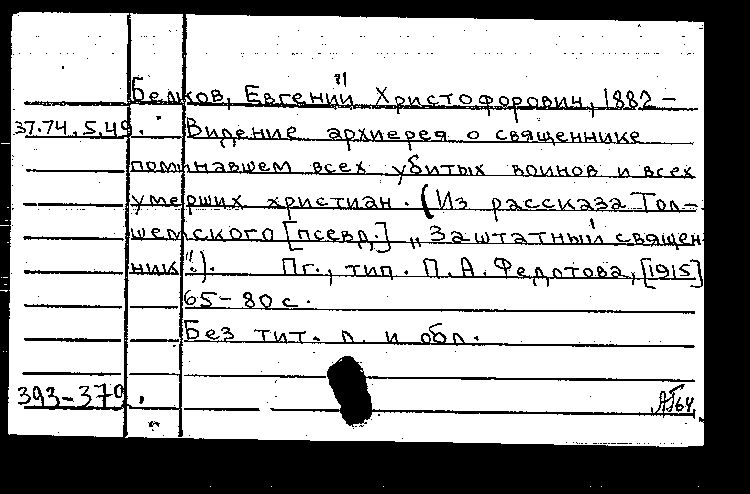 Белков, Евгений Христофорович, 1882 –
37.74.5.49. Видение архиерея о священнике
поминавшем всех убитых воинов и всех
умерших христиан. (Из рассказа Тол-
шемского [псевд.] „Заштатный священ
ник“). Пг., тип. П. А. Федотова, [1915]
65–80 с.
Без тит. л. и обл.
393–379.